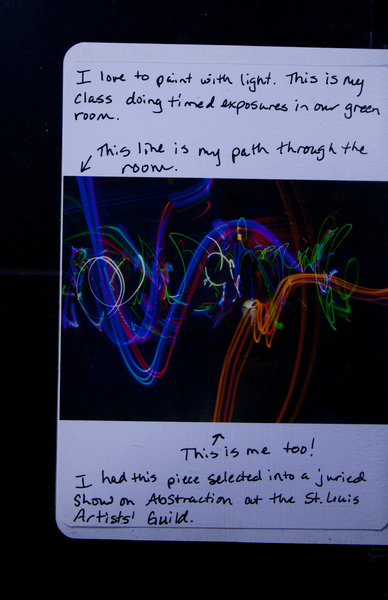 I love to paint with light. This is my
class doing timed exposures in our green
room.
This line is my path through the
room.
This is me too!
I had this piece selected into a juried
show on Abstraction at the St. Louis
Artists' Guild.